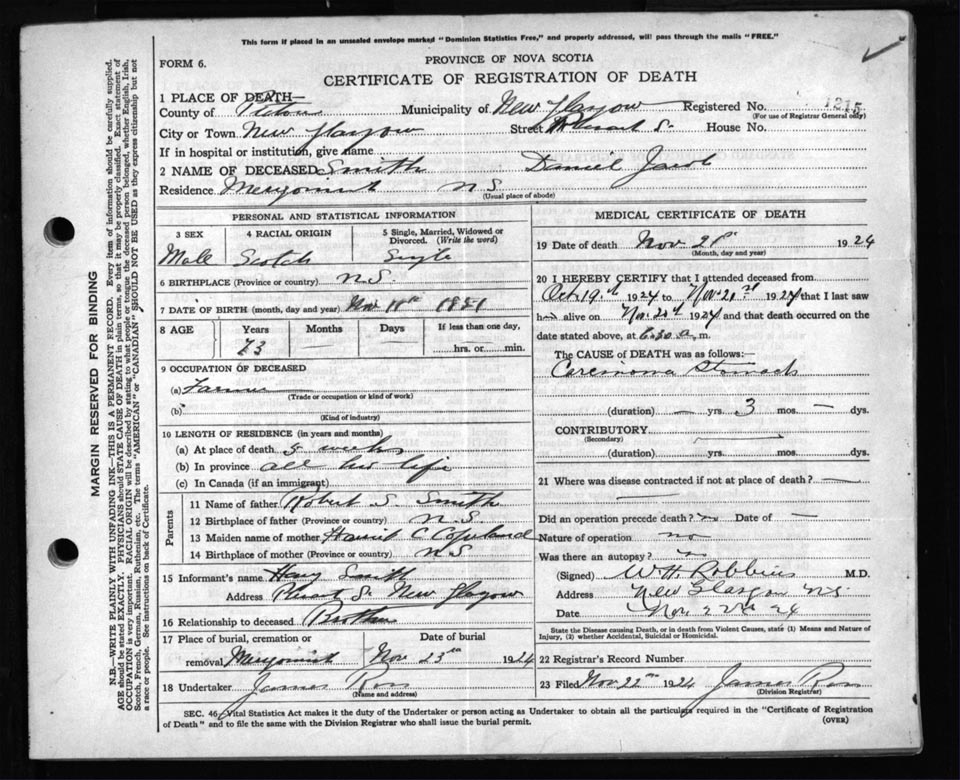 This form if placed in an unsealed envelope marked "Dominion Statistics Free," and properly addressed, will pass through the mails "FREE."
FORM 6.
PROVINCE OF NOVA SCOTIA
CERTIFICATE OF REGISTRATION OF DEATH
1 PLACE OF DEATH—
County of Pictou Municipality of New Glasgow Registered No. 1215
(For use of Registrar General only)
City or Town New Glasgow Street Pleasant S. House No.
If in hospital or institution, give name
2 NAME OF DECEASED Smith Daniel Jacob
Residence Merigomish N S
(Usual place of abode)
PERSONAL AND STATISTICAL INFORMATION
3 SEX 4 RACIAL ORIGIN 5 Single, Married, Widowed or Divorced. (Write the word)
Male Scotch Single
6 BIRTHPLACE (Province or country) N.S.
7 DATE OF BIRTH (month, day and year) Nov 11th
8 AGE Years Months Days If less than one day,
73 — — hrs. or min.
9 OCCUPATION OF DECEASED
(a) Farmer
(Trade or occupation or kind of work)
(b)
(Kind of industry)
10 LENGTH OF RESIDENCE (in years and months)
(a) At place of death 5 weeks
(b) In province all his life
(c) In Canada (if an immigrant)
Parents
11 Name of father Robert S. Smith
12 Birthplace of father (Province or country) N.S.
13 Maiden name of mother Harriet C Copeland
14 Birthplace of mother (Province or country) N S
15 Informant's name Smith
Address Pleasant S. New Glasgow
16 Relationship to deceased Brother
17 Place of burial, cremation or Date of burial
removal Merigomish Nov 23rd 1924
18 Undertaker James Ross
(Name and address)
MEDICAL CERTIFICATE OF DEATH
19 Date of death Nov 21st 1924
(Month, day and year)
20 I HEREBY CERTIFY that I attended deceased from
Oct 19th 1924 to Nov. 1924 that I last saw
him alive on Nov. 1924 and that death occurred on the
date stated above, at 6.30 a. m.
The CAUSE OF DEATH was as follows:—
Carcinoma Stomach
(duration) — yrs. 3 mos. — dys.
CONTRIBUTORY
(Secondary)
(duration) yrs. mos. dys.
21 Where was disease contracted if not at place of death? —
Did an operation precede death? no Date of —
Nature of operation no
Was there an autopsy? no
(Signed) W.H. Robbins M.D.
Address New Glasgow N.S.
Date Nov. 22nd 24
State the Disease causing Death, or in death from Violent Causes, state (1) Means and Nature of Injury, (2) whether Accidental, Suicidal or Homicidal.
22 Registrar's Record Number
23 Filed Nov 22nd 1924 James Ross
(Division Registrar)
SEC. 46, Vital Statistics Act makes it the duty of the Undertaker or person acting as Undertaker to obtain all the particulars required in the "Certificate of Registration
of Death" and to file the same with the Division Registrar who shall issue the burial permit.
(OVER)
MARGIN RESERVED FOR BINDING
N.B.—WRITE PLAINLY WITH UNFADING INK—THIS IS A PERMANENT RECORD. Every item of information should be carefully supplied.
AGE should be stated EXACTLY. PHYSICIANS should STATE CAUSE OF DEATH in plain terms, so that it may be properly classified. Exact statement of
OCCUPATION is very important. RACIAL ORIGIN will be described by stating to what people or tongue the deceased person belonged, whether English, Irish,
Scotch, French, German, Russian, Ruthenian, etc. The terms "AMERICAN" or "CANADIAN" SHOULD NOT BE USED as they express citizenship but not
a race or people. See instructions on back of Certificate.